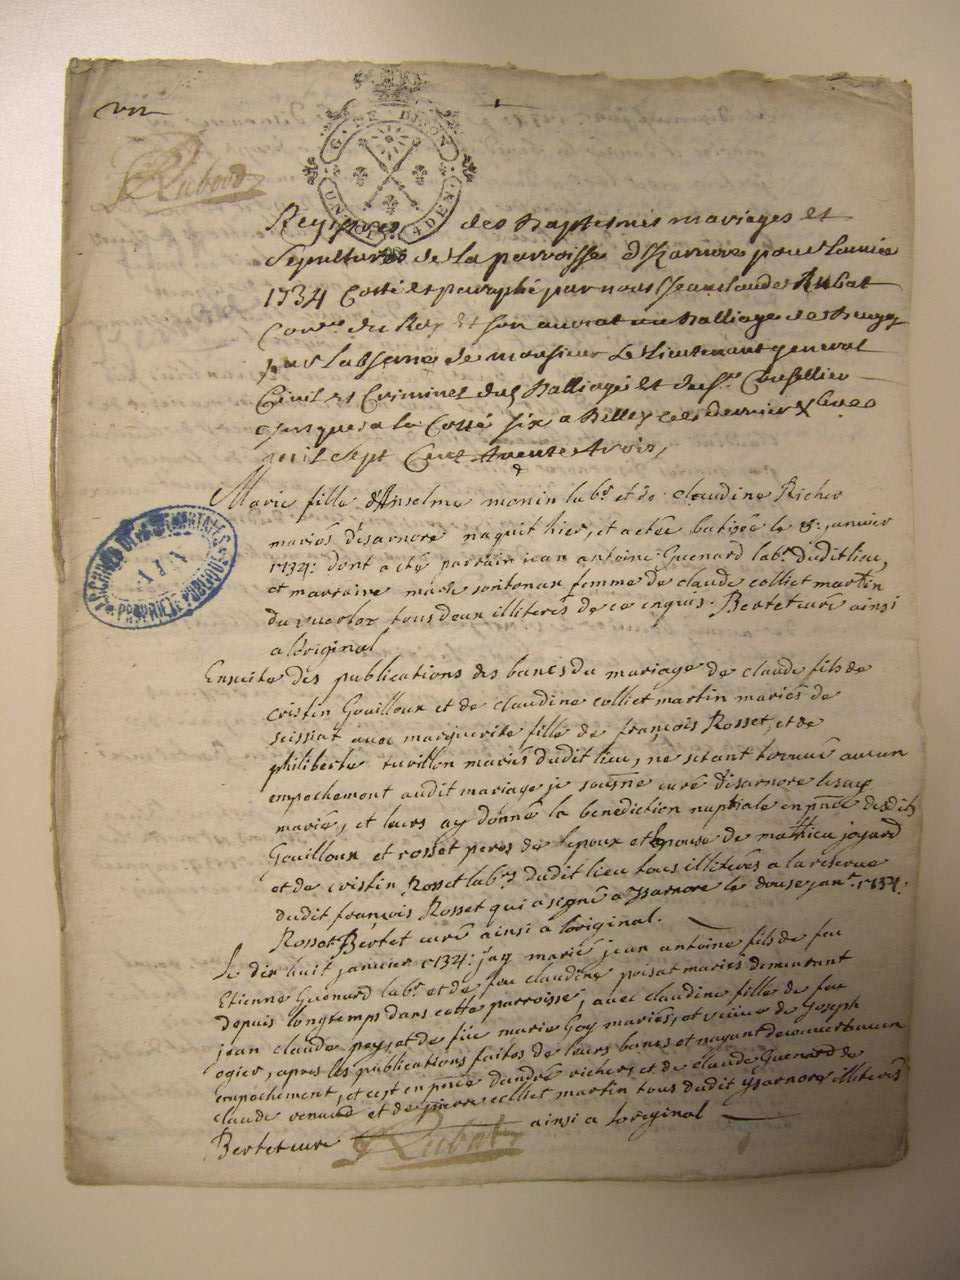 G. DE DIJON
UN 4 DEN.
Rubat
Registres des Baptesmes mariages et
Sepultures de la parroisse d'Izarnore pour l'année
1734 Cotté et paraphé par nous Jean Claude Rubat
du Roy Et son avocat au Balliage de Bugey
l'absence de monsieur le Lieutenant general
Civil et Criminel du Balliage Et du Sr. Conseiller
jusques a la Cotte six a Belley le dernier Xbre
mil Sept Cent trente trois,
Marie fille d'Anselme monin labr. et de claudine Richer
mariés d'isarnore naquit hier, et a etée batisée le 8: janvier
1734: dont a été parrain jean antoine Guenard labr. dudit lieu,
et marraine marie sontonax femme de claude colliet martin
du tous deux illiterés de ce enquis. Bertet curé ainsi
a l'original
Ensuite des publications des bancs du mariage de claude fils de
cristin Gouilloux et de claudine colliet martin mariés de
seissiat avec marguerite fille de françois Rosset, et de
philiberte tavillon mariés dudit lieu, ne s'etant trouvé aucun
empechement audit mariage je sousné curé d'isarnore les ay
mariés, et leurs ay donné la benediction nuptiale en pnce desdits
Gouilloux et rosset peres de l'epoux et epouse de mathieu joyard
et de cristin Rosset labrs. dudit lieu tous illiterés a la reserve
dudit françois Rosset qui a signé a Ysarnore le douse janr. 1734:
Rosset Bertet curé ainsi a l'original.
Le dix huit janvier 1734: j'ay marié jean antoine fils de feu
Etienne Guenard labr. et de feu claudine poisat mariés demeurant
depuis longtemps dans cette parroisse, avec claudine fille de feu
jean claude pey, et de feue marie Goy mariés, et veuve de Joseph
ogier, apres les publications faites de leurs bancs et n'ayant decouvert aucun
empechement, et c'est en pnce d'andré richer, et de claude Guenard de
claude renaud et de pierre colliet martin tous dudit Ysarnore illiterés
Bertet curé ainsi a l'original
Rubat
ARCHIVES DEPARTEMENTALES
AIN
PROPRIETE PUBLIQUE